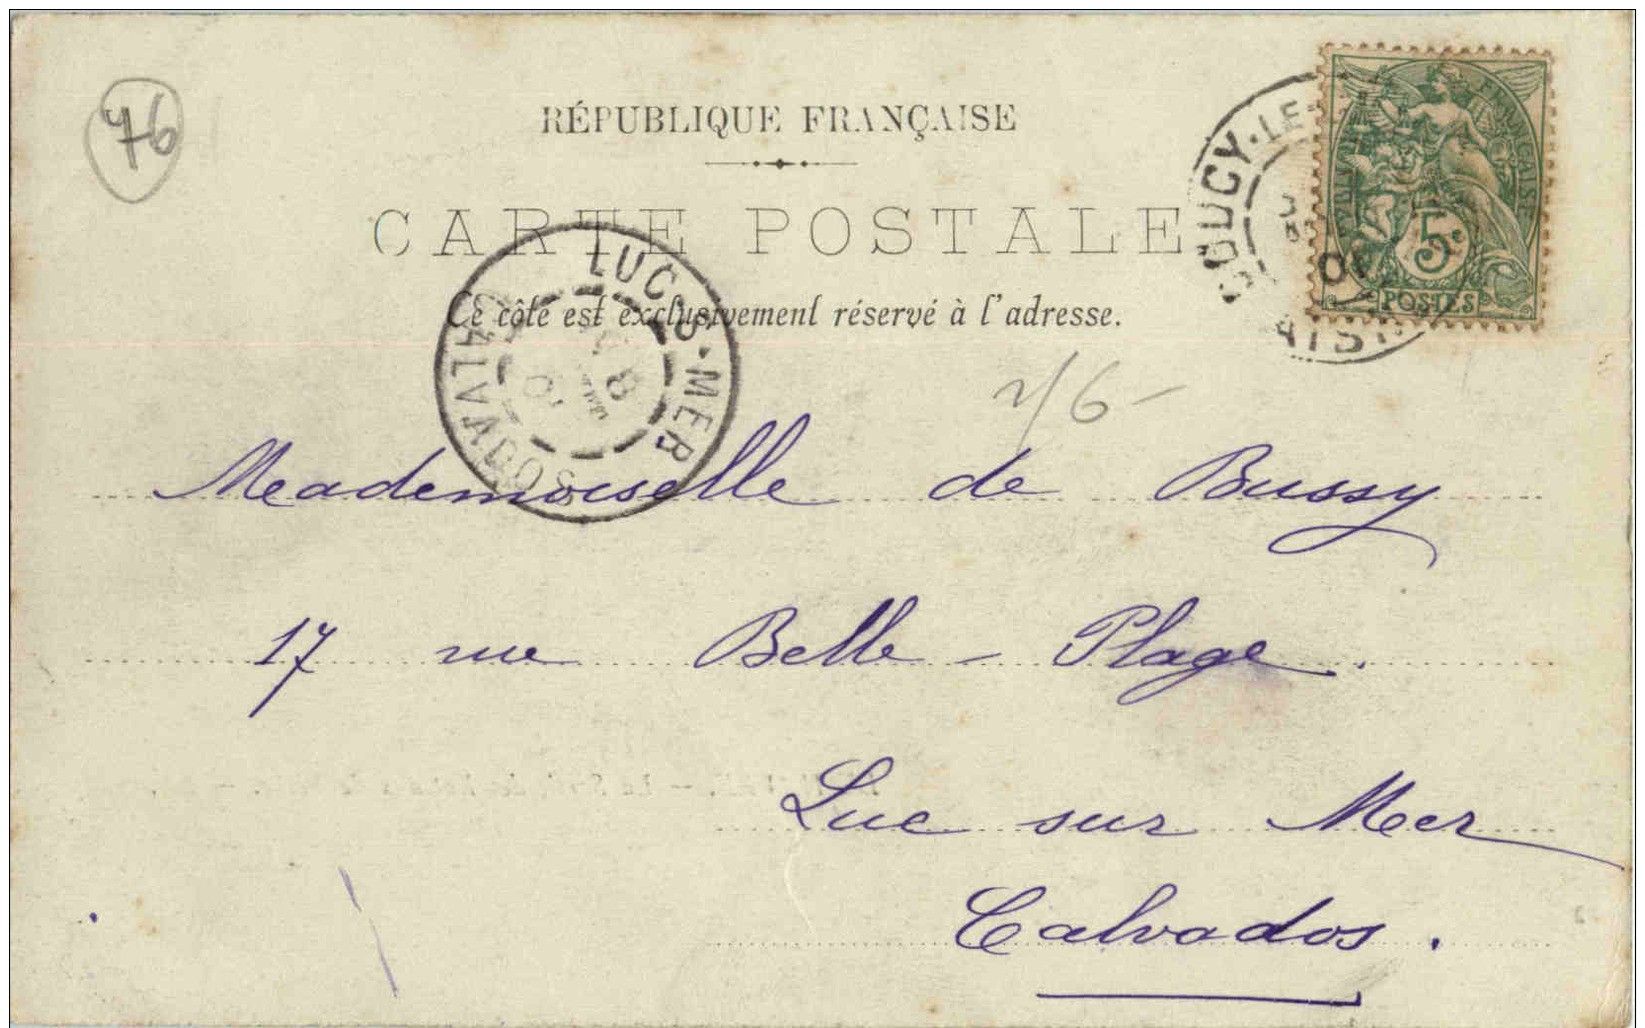 76
RÉPUBLIQUE FRANÇAISE
CARTE POSTALE
Ce côté est exclusivement réservé à l'adresse.
COUCY-LE-
LUC-S-MER
CALVADOS
5c
POSTES
Mademoiselle de Bussy
17 rue Belle-Plage.
Luc sur Mer
Calvados.